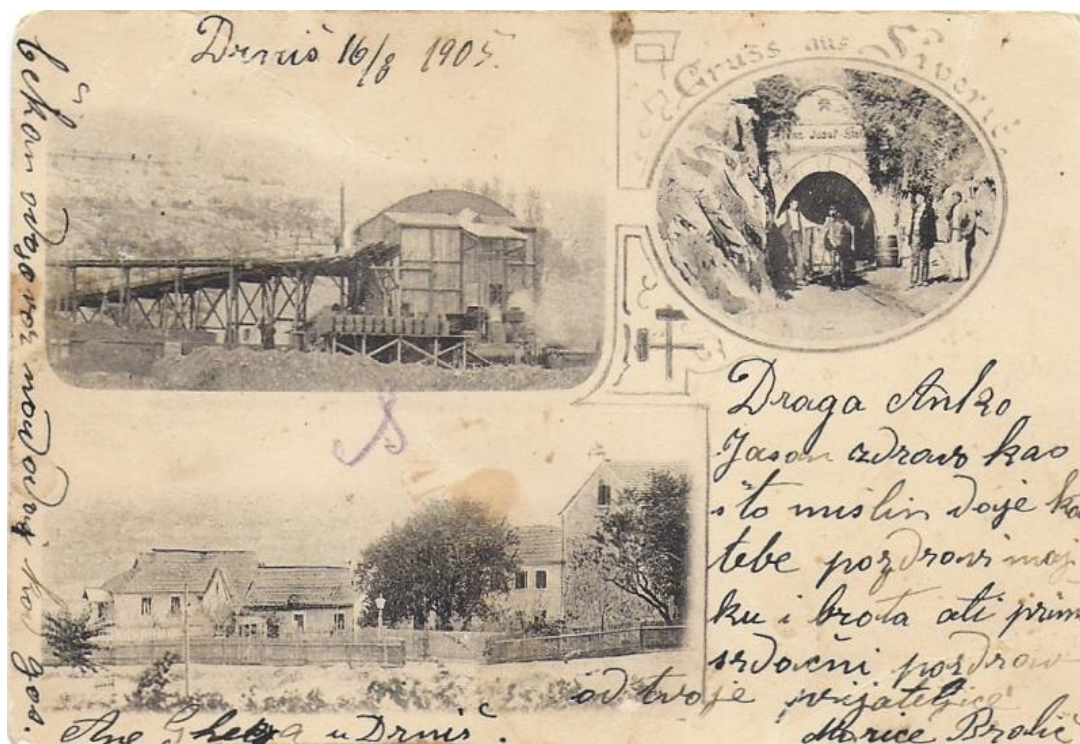 Drniš 16/8 1905.
Gruss aus Siverić
Franz Josef-Stollen
Draga Anko
Jasan zdravo kao
što mislin daje ko
tebe pozdravi maj
ku i brata ati prim
srdačni pozdrav
od tvoje prijateljice
Marice Bralić
Ane u Drniš.